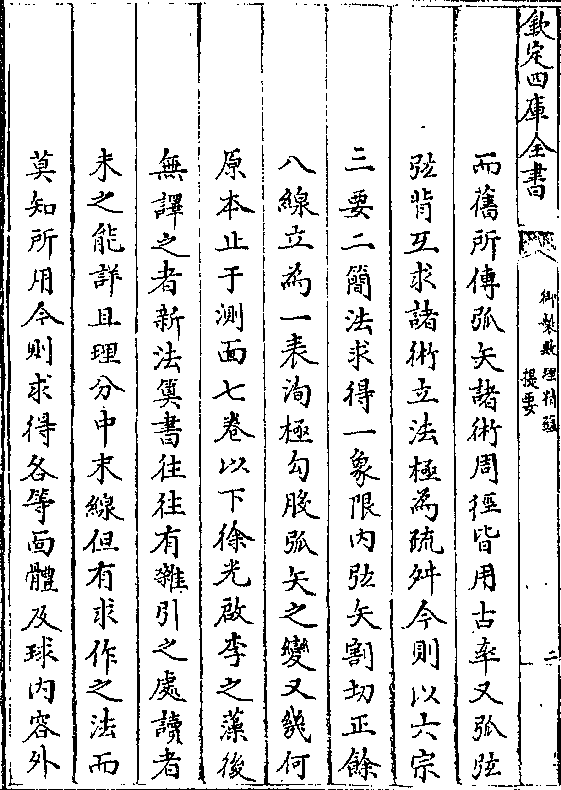 欽定四庫全書
御製數理精蘊
提要
二
而舊所傳弧矢諸術周徑皆用古率又弧弦
弦背互求諸術立法極為疏舛今則以六宗
三要二簡法求得一象限內弦矢割切正餘
八線立為一表洵極勾股弧矢之變又幾何
原本止于測面七卷以下徐光啟李之藻後
無譯之者新法算書往往有雜引之處讀者
未之能詳且理分中末線但有求作之法而
莫知所用今則求得各等面體及球內容外